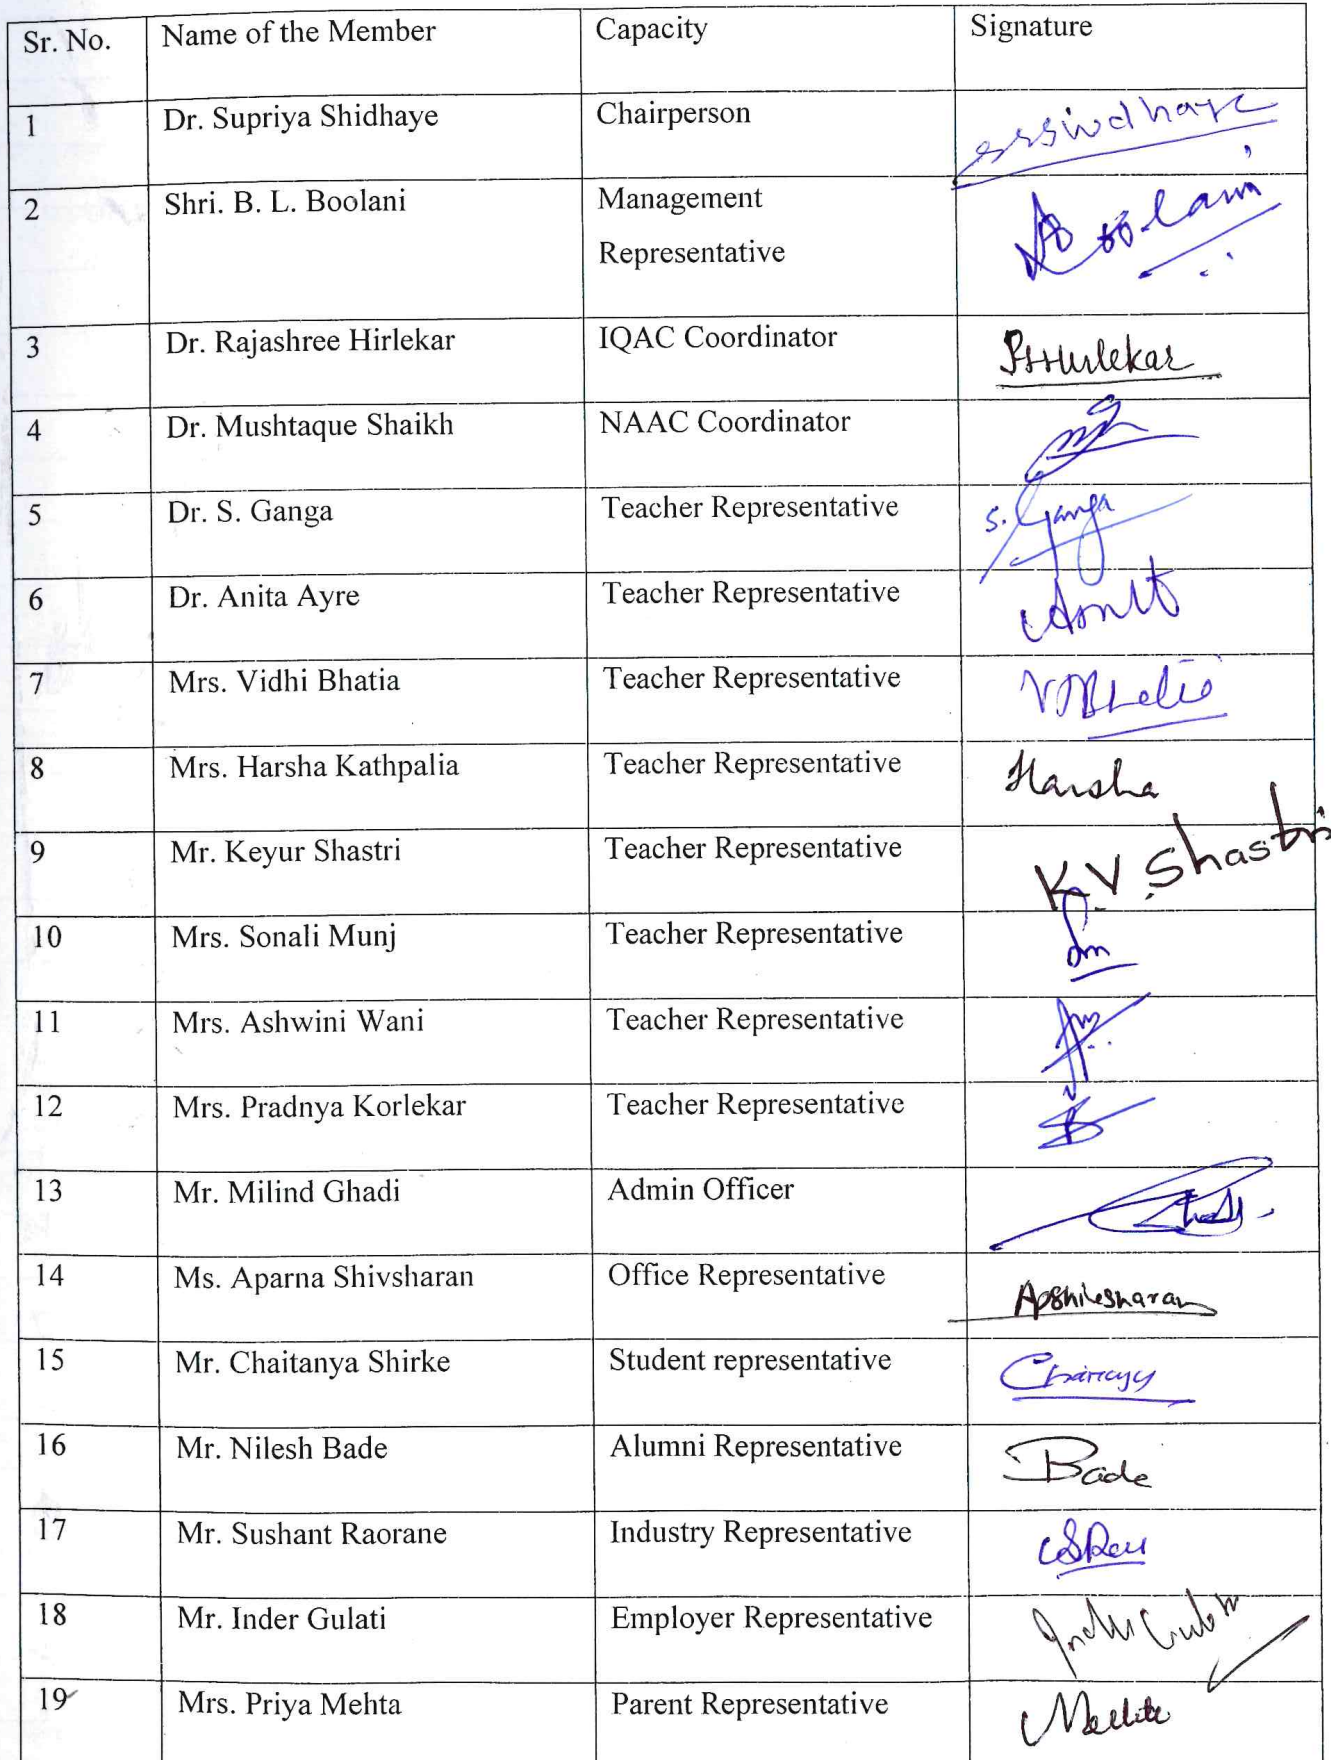 Sr. No. Name of the Member Capacity Signature
1 Dr. Supriya Shidhaye Chairperson
2 Shri. B. L. Boolani Management Boolani
Representative
3 Dr. Rajashree Hirlekar IQAC Coordinator
4 Dr. Mushtaque Shaikh NAAC Coordinator
5 Dr. S. Ganga Teacher Representative S. Ganga
6 Dr. Anita Ayre Teacher Representative
7 Mrs. Vidhi Bhatia Teacher Representative
8 Mrs. Harsha Kathpalia Teacher Representative Harsha
9 Mr. Keyur Shastri Teacher Representative K.V Shastri
10 Mrs. Sonali Munj Teacher Representative
11 Mrs. Ashwini Wani Teacher Representative
12 Mrs. Pradnya Korlekar Teacher Representative
13 Mr. Milind Ghadi Admin Officer
14 Ms. Aparna Shivsharan Office Representative
15 Mr. Chaitanya Shirke Student representative
16 Mr. Nilesh Bade Alumni Representative Bade
17 Mr. Sushant Raorane Industry Representative
18 Mr. Inder Gulati Employer Representative
19 Mrs. Priya Mehta Parent Representative